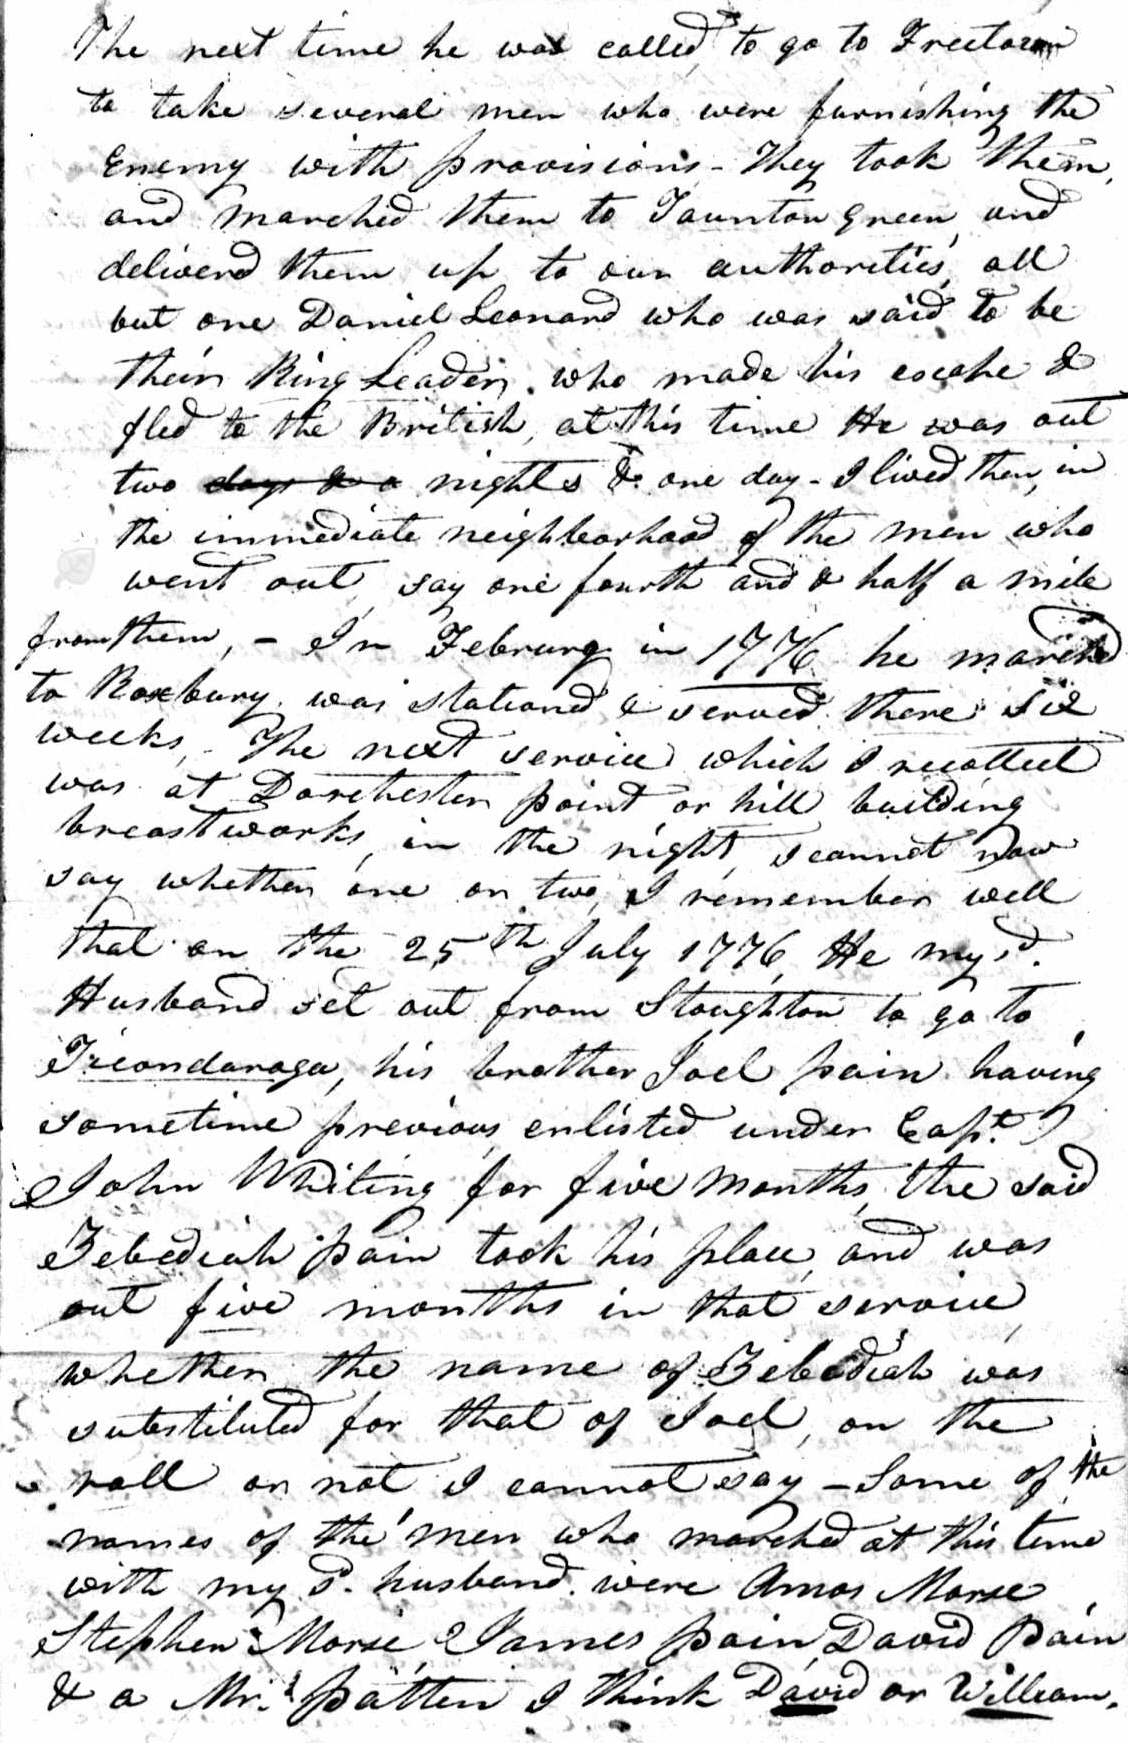 The next time he was called, to go to Freetown
to take several men who were furnishing the
Enemy with provisions - They took them,
and marched them to Taunton Green, and
deliverd them up to our authorities, all
but one Daniel Leonard who was said to be
their Ring Leader, who made his escape &
fled to the British, at this time He was out
two days & a nights & one day - I lived then, in
the immediate neighborhood of the men who
went out, say one fourth and a half a mile
from them, - In Februry in 1776 he marched
to Roxbury was stationd & served there six
weeks, The next service which I recollect
was at Dorchester point or hill building
breastworks, in the night, I cannot now
say whether one or two, I remember well
that on the 25th July 1776, He my sd.
Husband set out from Stoughton to go to
Ticondaroga, his brother Joel pain having
sometime previous enlisted under Capt.
John Whiting for five months, the said
Zebediah pain took his place, and was
out five months in that service,
whether the name of Zebediah was
substituted for that of Joel, on the
roll or not I cannot say - Some of the
names of the men who marched at this time
with my sd. husband. were Amos Morse
Stephen Morse, James pain, David Pain
& a Mr. patten I think David or William.